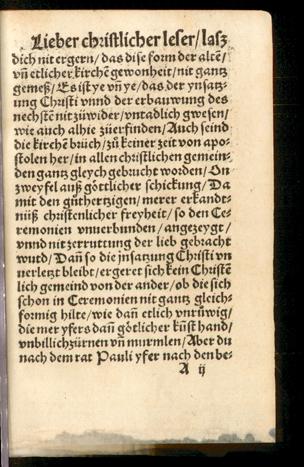 Lieber christlicher leser/ lasz
dich nit ergern/ das dise form der altē/
vñ etlicher kirchē gewonheit/ nit gantz
gemeß/ Es ist ye vñ ye/ das der ynsatz-
ung Christi vnnd der erbauwung des
nechstē nit züwider/ vntadlich gwesen/
wie auch alhie züerfinden/ Auch seind
die kirchē brüch/ zů keiner zeit von apo-
stolen her/ in allen christlichen gemein-
den gantz gleych gebrucht worden/ On
zweyfel auß göttlicher schickung/ Da
mit den gůthertzigen/ merer erkandt-
niiß christenlicher freyheit/ so den Ce-
remonien vnuerbunden/ angezeygt/
vnnd nit zerruttung der lieb gebracht
wurd/ Dañ so die jnsatzung Christi vn
uerletzt bleibt/ ergeret sich kein Christē
lich gemeind von der ander/ ob die sich
schon in Ceremonien nit gantz gleich-
formig hilte/ wie dañ etlich vnrůwig/
die mer yfers dañ götlicher kůst hand/
vnbillich zürnen vñ murmlen/ Aber du
nach dem rat Pauli yfer nach den be-
A ij